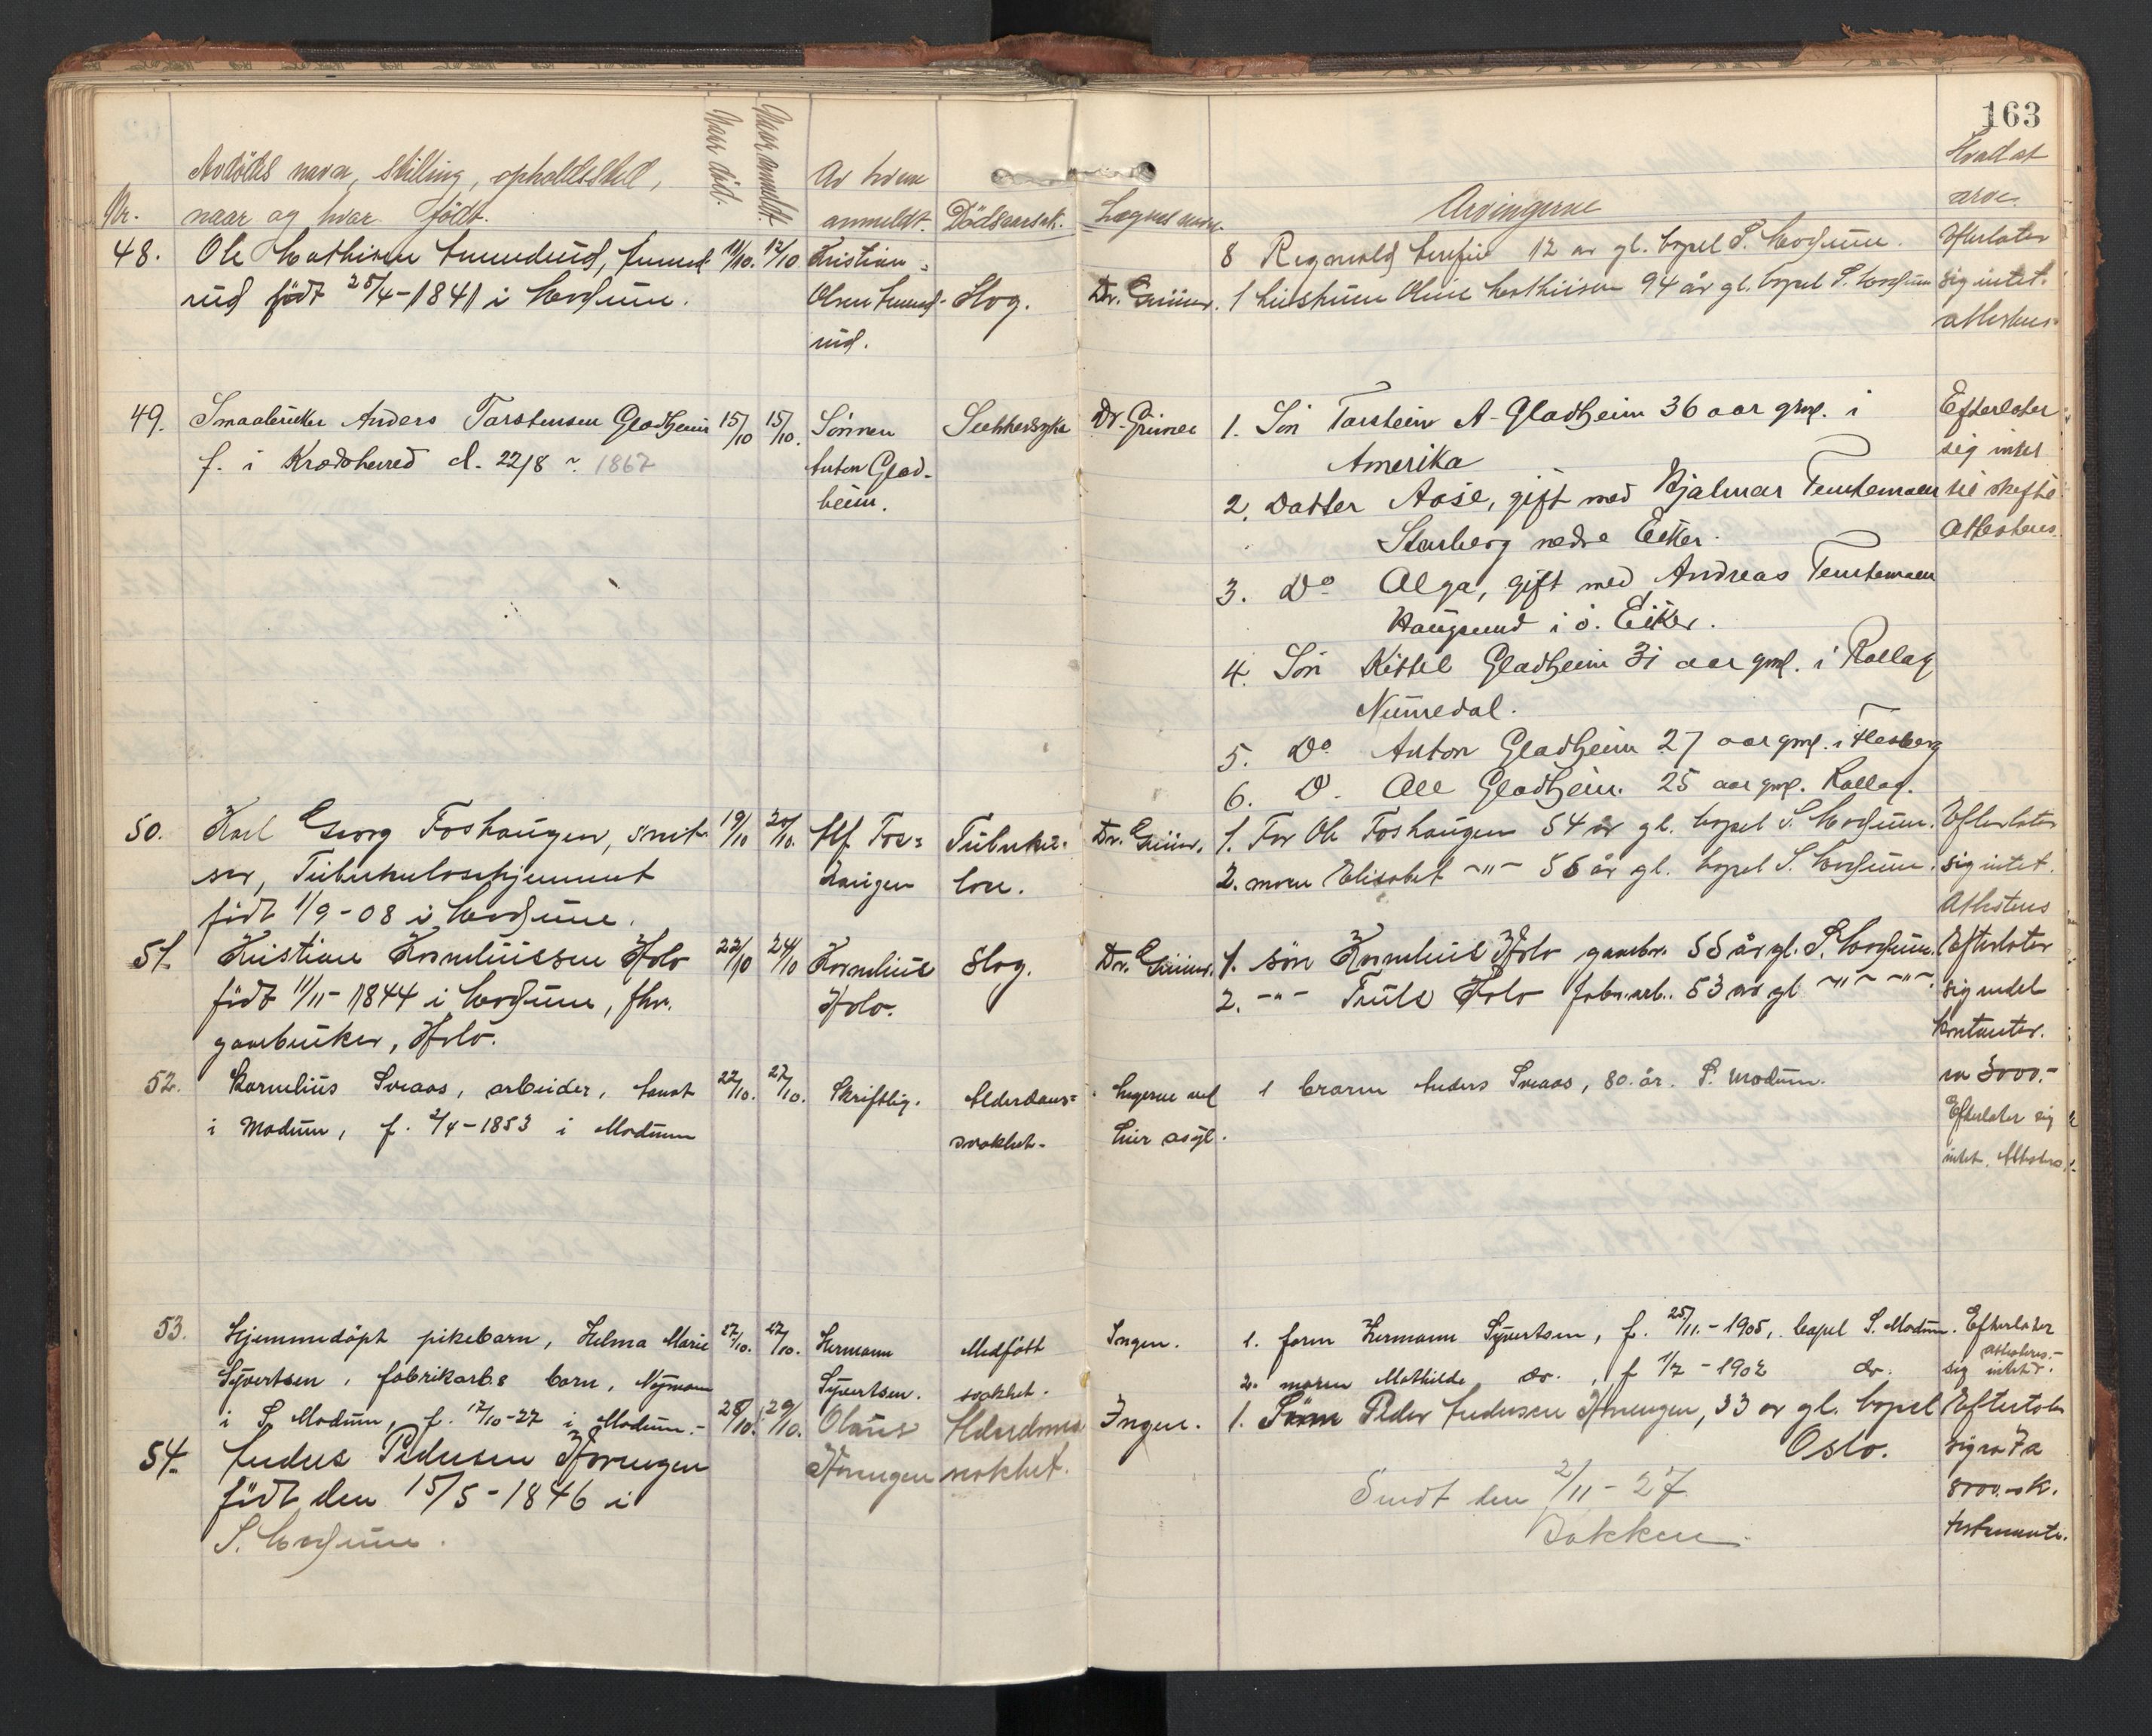 163
Avdødes navn, stilling, opholdssted,
Nr. naar og hvor født.
Naar død.
Naar anmeldt.
Av hvem
anmeldt.
Dødsaarsak.
Lægens navn.
Arvingerne
Hvad at
arve.
8 Ragnvald 12 år gl. bopel S. Modum.
48. Ole Mathisen
rud født 25/4-1841 i Modum.
11/10. 12/10
Kristian
Olsen
rud.
Slag.
Dr. Grüner.
1 Hustruen Oline Mathisen 94 år gl. bopel S. Modum
Efterlater
sig intet.
attesteres
49. Smaabruker Anders Torstensen Gladheim
f. i Krødsherred d. 22/8 1867
15/10 15/10.
Sønnen
Anton Glad-
heim.
Sukkersyke
Dr. Grüner
1. Søn Torstein A. Gladheim 36 aar gml. i
Amerika
2. Datter Aase, gift med Hjalmar Temtemoen
Stenberg nedre Eiker.
3. Do Olga, gift med Andreas Temtemoen
Hougsund i ø. Eiker.
4. Søn Kittel Gladheim 31 aar gml. i Rollag
Numedal.
5. Do Anton Gladheim 27 aar gml. i Flesberg
6. D. Ole Gladheim 25 aar gml. Rollag.
Efterlater
sig intet
til skifte
Attesteres.
50. Karl Georg Foshaugen,
ser, Tuberkuloschjemmet
født 1/9-08 i Modum.
19/10 20/10.
Alf Fos=
haugen
Tuberku=
lose.
Dr. Grüner.
1. Far Ole Foshaugen 54 år gl. bopel S. Modum.
2. moren Elisabet -"- 56 år gl. bopel S. Modum.
Efterlater
sig intet.
Attesteres
51. Kristian Korneliussen Holo
født 11/11-1844 i Modum, fhv.
gaardbruker, Holo.
22/10 24/10
Kornelius
Holo.
Slag.
Dr. Grüner.
1. søn Kornelius Holo gaardbr. 55 år gl. S. Modum.
2. -"- Truls Holo fabr.arb. 53 år gl. -"- -"-
Efterlater
sig endel
kontanter.
ca 3000.-
52. Kornelius Sveaas, arbeider,
i Modum, f. 2/4-1853 i Modum
22/10. 27/10.
Skriftlig.
Alderdoms=
svakhet.
Lægerne ved
Lier asyl.
1 broren Anders Sveaas, 80 år. S. Modum.
Efterlater sig
intet. Attesteres.
53. Hjemmedøpt pikebarn, Helma Marie
Syvertsen, fabrikarb.s barn, Nymoen
i S. Modum, f. 17/10-27 i Modum.-
27/10. 27/10.
Hermann
Syvertsen.
Medfødt
svakhet.
Ingen.
1. faren Hermann Syvertsen, f. 25/11.-1905, bopel S. Modum.
2. moren Mathilde do., f 1/7-1902 do.
Efterlater
sig intet.
attesteres.-
54. Anders Pedersen
født den 15/5-1846 i
S. Modum.
28/10. 29/10.
Olaus
Alderdoms
svakhet.
Ingen.
1. Sønn Peder Andersen 33 år gl. bopel
Oslo.
Efterlater
sig ca 7 a
8000.- k.
testamente.
Sendt den 2/11-27
Bakken.